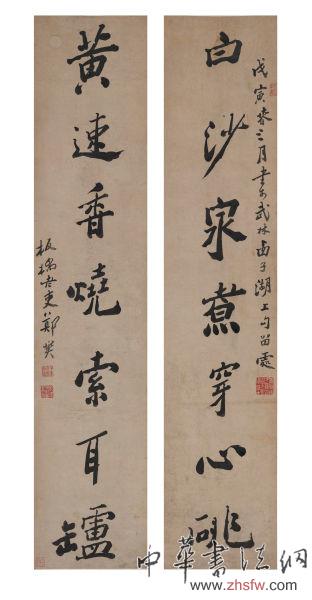 戊寅春三月書於武林西子湖上勾留處
白沙泉煮穿心
黃速香燒索耳罏
板橋老吏鄭燮
中華書法網
www.zhsfw.com